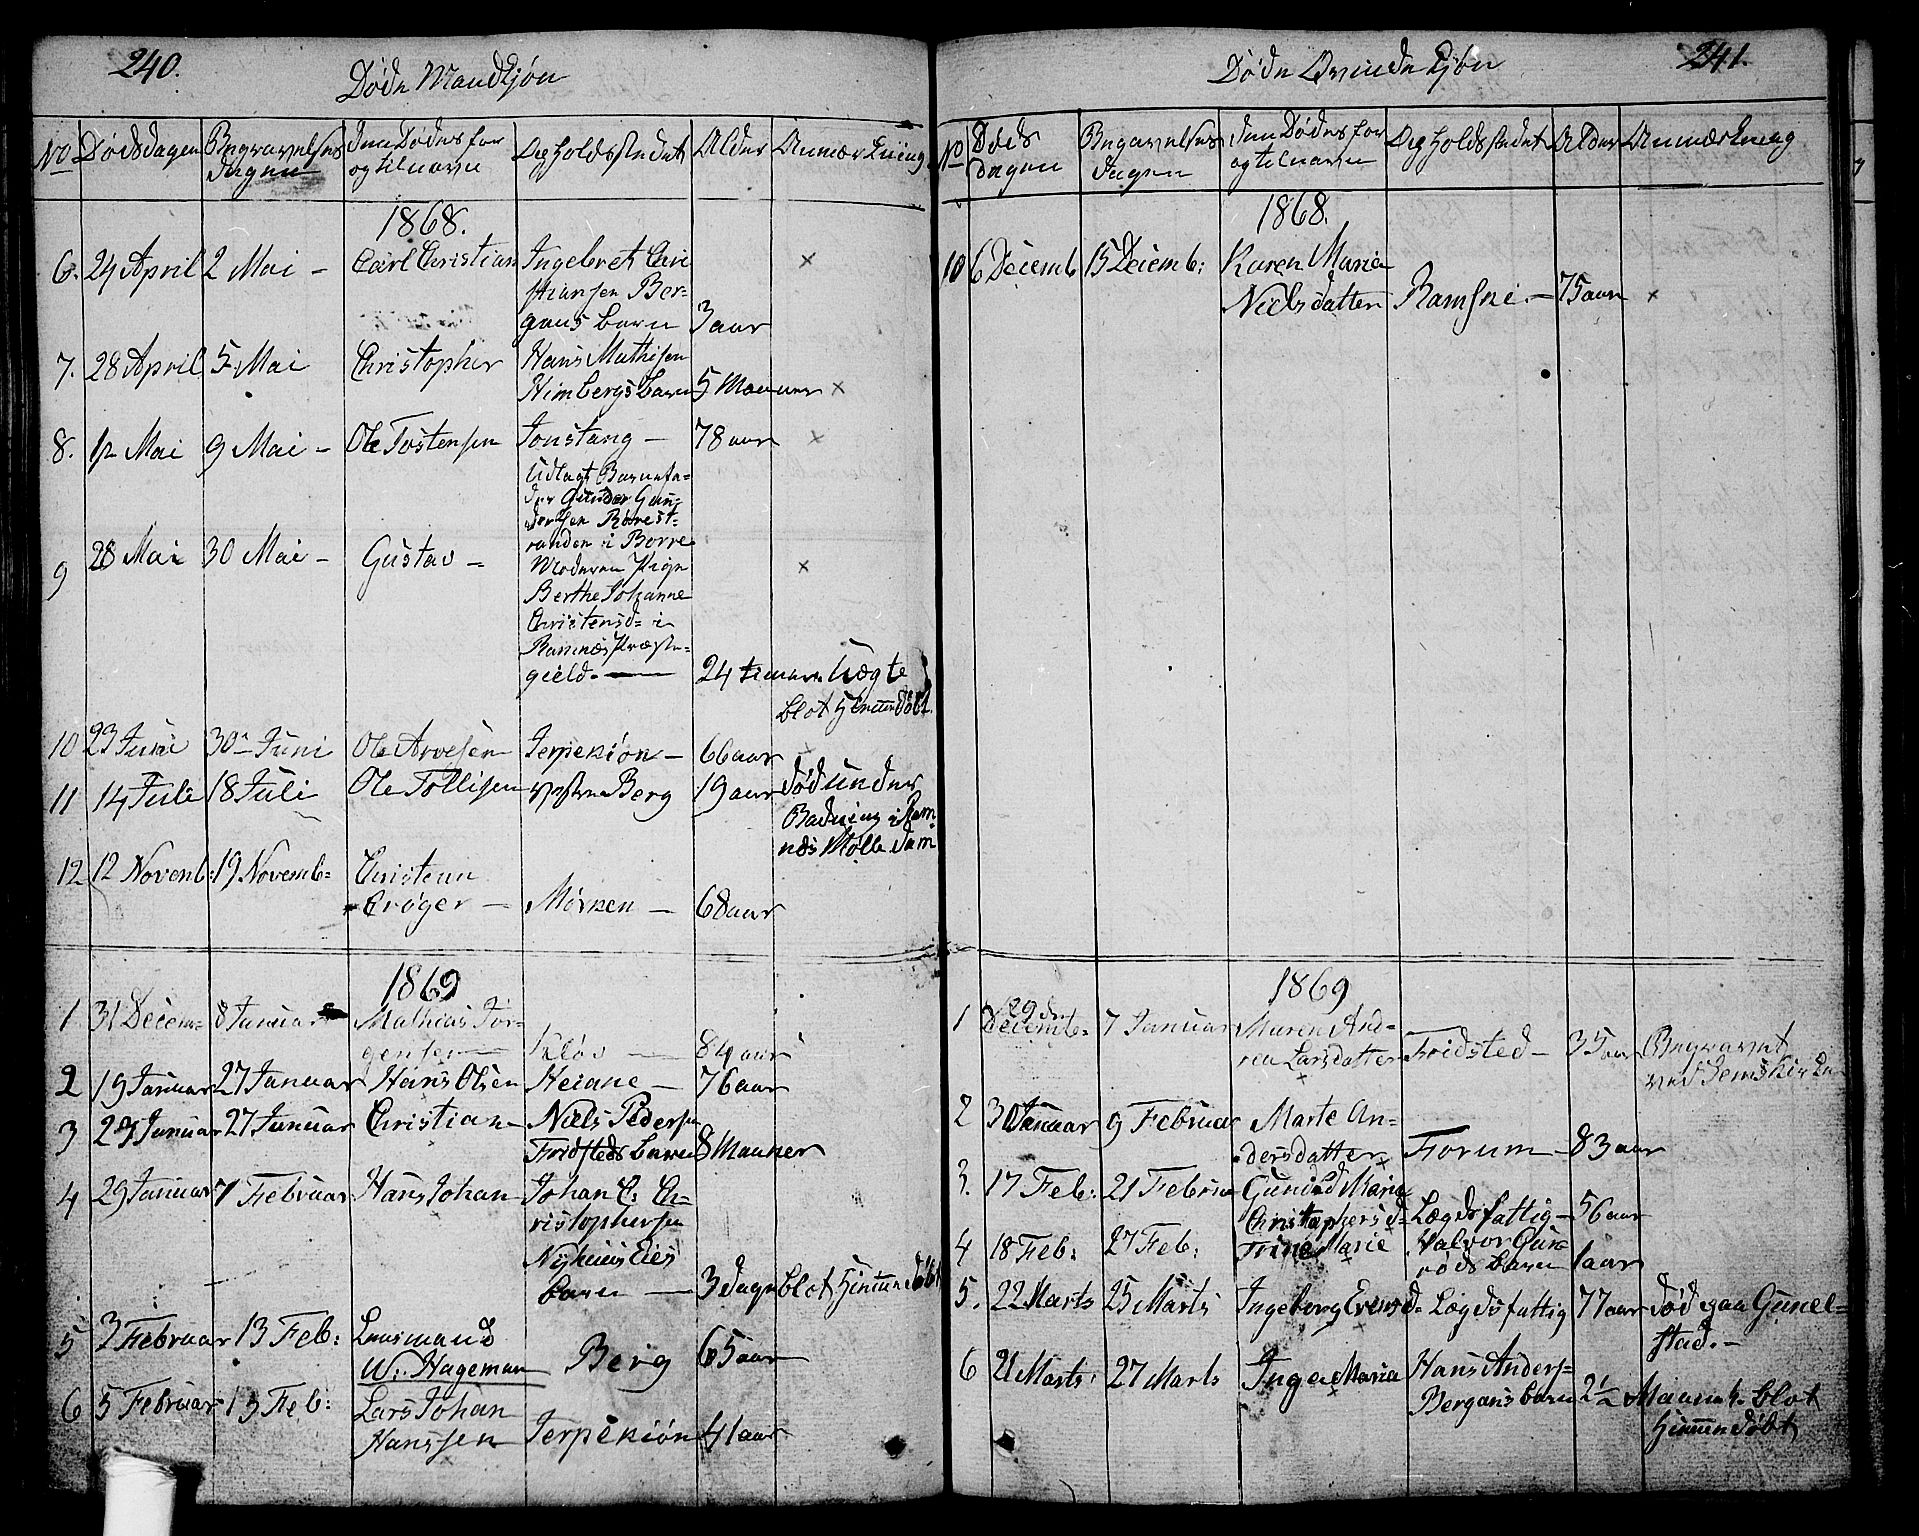 240.
Døde Mandkjøn
No Dødsdagen Begravelses Dagen Den Dødes for og tilnavn Opholdsstedet Alder Anmærkning
1868.
6. 24 April 2 Mai - Carl Christian Ingebret Chri
stiansen Ber-
gans barn 3 aar ×
7. 28 April 5 Mai Christopher Hans Mathisen
Himbergs barn 5 Maaneer ×
8. 12 Mai 9 Mai - Ole Tostensen Jonstang - 78 aar ×
9 28 Mai 30 Mai - Gustav - Udlagt Barnefa-
der Gunder Gun-
dersen Rørest-
randen i Borre
Moderen Pige
Berthe Johanne
Christensd= i
Ramnæs Præste-
gield. - 24 timer ægte ×
blot hiemmedøbt.
10 23 Juni 30 Juni Ole Arvesen Jerpekiøn - 66 aar
11 14 Juli 18 Juli Ole Tollisen vestre Berg 19 aar død under
Badning i Ram-
næs Mølle dam
12 12 Novemb: 19 Novemb= Christenn
Crøger - Mørken - 68 aar
1869
1 31 Decem= 8 Januar Mathias Jør-
gensen - Kløv - 84 aar
2 19 Januar 27 Januar Hans Olsen Heiane - 76 aar
3 23 Januar 27 Januar Christian - Niels Pedersen
Fridsteds barn 8 Maaneer
4 29 Januar 7 Februar Hans Johan Johan C: Ch-
ristophersen
Nyhuus Eies
barn - 3 dage blot hiemmedøbt
5 3 Februar 13 Feb: Lensmand
W. Hageman Berg 65 aar
6 5 Februar 13 Feb: Lars Johan
Hanssen Jerpekiøn 41 aar
241.
Døde Qvindekjøn
No Døds dagen Begravelses Dagen Den Dødes for og tilnavn Opholdsstedet Alder Anmærkning
1868.
10 6 Decemb 15 Decemb: Karen Maria
Nielsdatter Ramske. - 75 aar ×
1869
1 29 den Decemb= 7 Januar Maren And-
rea Larsdatter Fridsted - 35 aar Begravet
ved
2 30 Januar 9 Februar Marte An-
dersdatter Forum - 83 aar
3. 17 Feb: 21 Februar Gunild Maria
Christophersd= Lægdsfattig - 56 aar
4 18 Feb: 27 Feb: Trine Marie Halvor Gun-
røds barn 1 aar
5. 22 Marts 25 Marts Ingeborg Evensd= Lægdsfattig 77 aar død paa Gunel-
stad. -
6 21 Marts 27 Marts Inga Maria Hans Anders-
Bergans barn 2½ Maaned. blot
hiemmedøbt